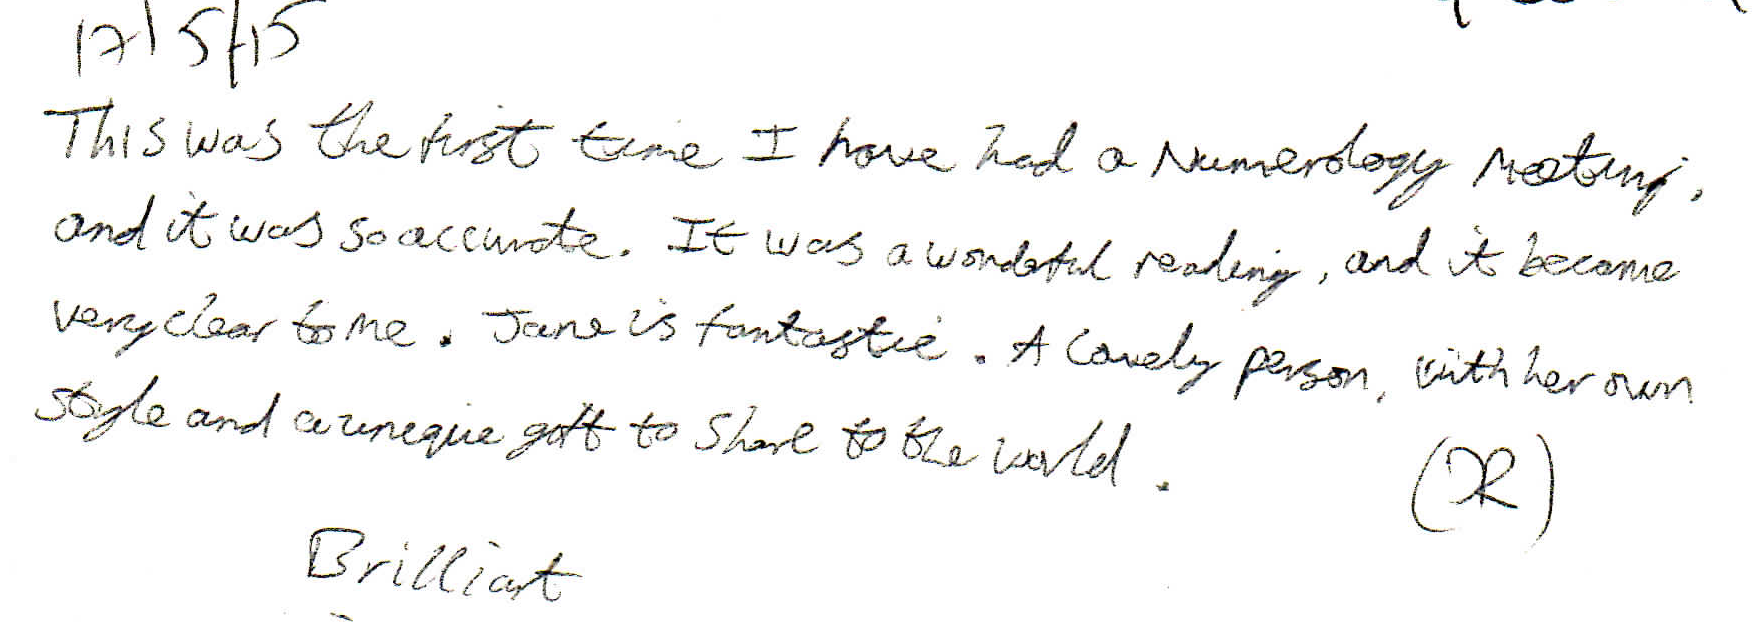 17/5/15
This was the first time I have had a Numerology Meeting,
and it was so accurate. It was a wonderful reading, and it became
very clear to me. Jane is fantastic. A Lovely person, with her own
style and a unique gift to share to the world.
(DR)
Brilliant